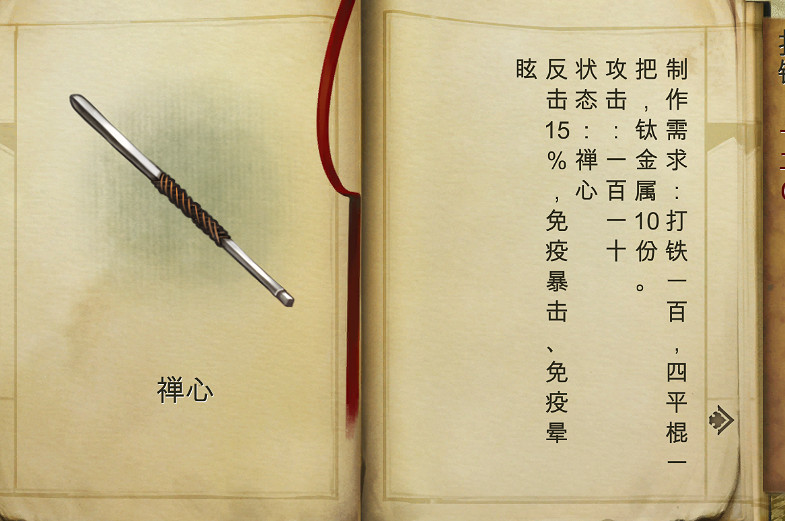 禅心
制作需求：打铁一百，四平棍一
把，钛金属10份。
攻击：一百一十
状态：禅心
反击15%，免疫暴击、免疫晕
眩